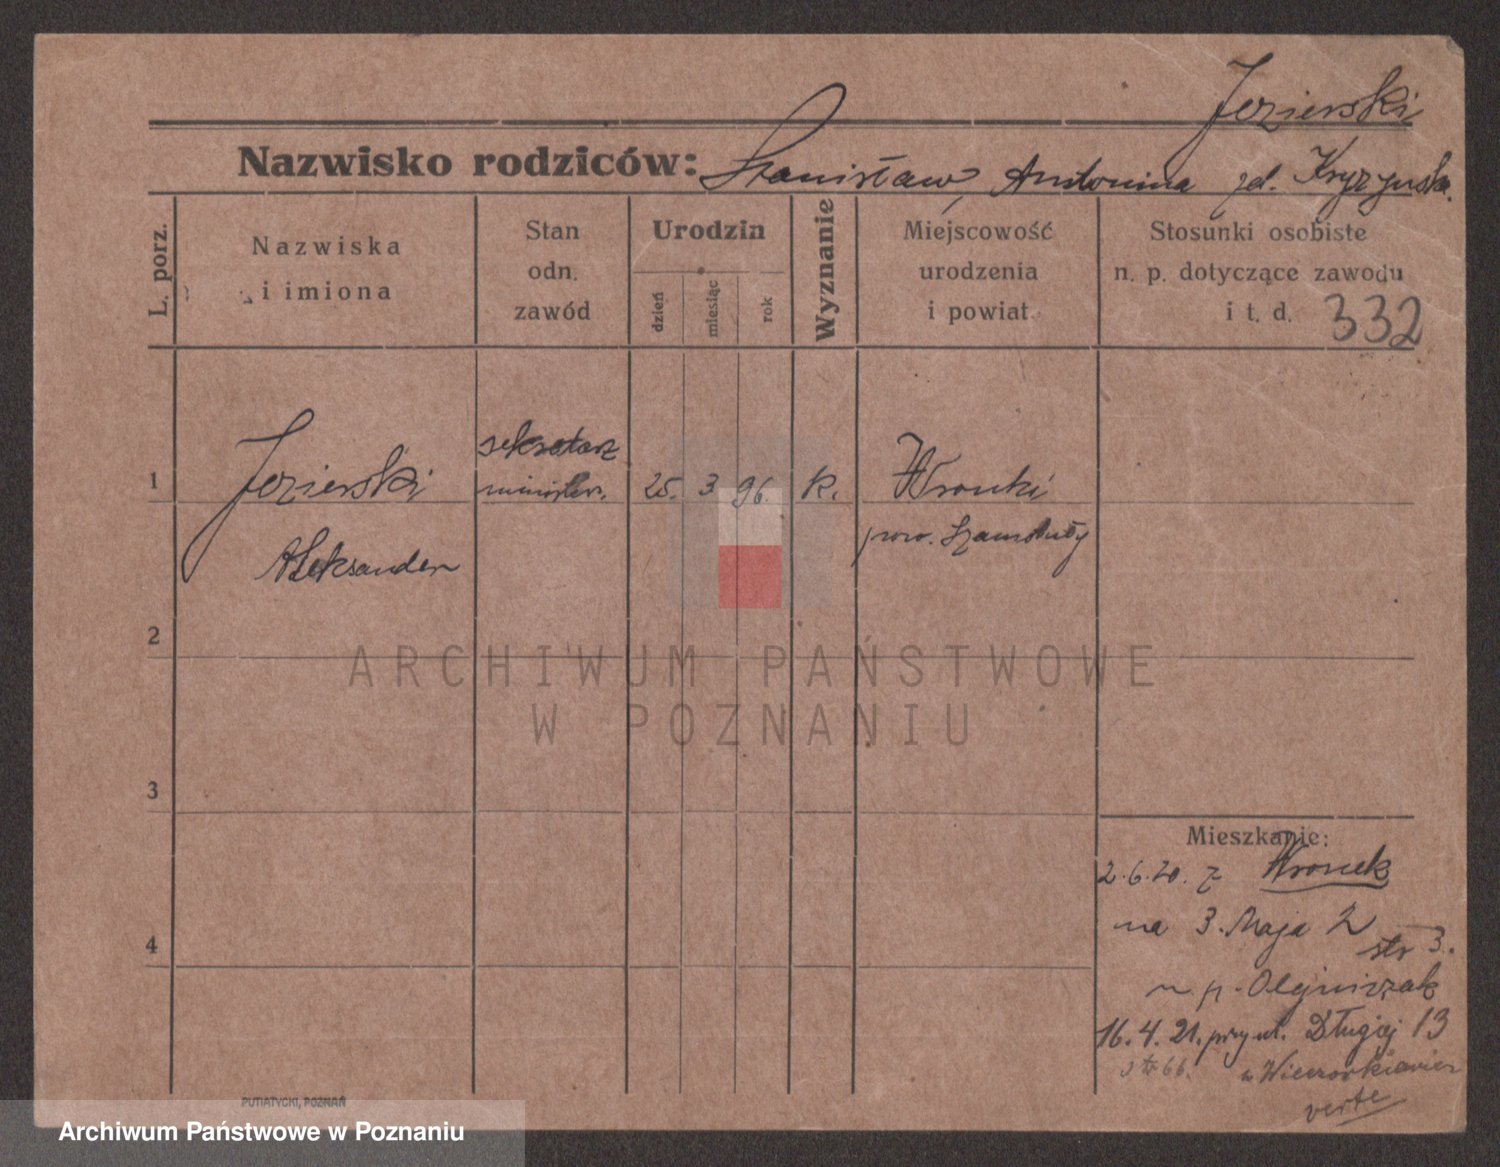 Jezierski
Nazwisko rodziców: Stanisław, Antonina
L. porz.
Nazwiska
i imiona
Stan
odn.
zawód
Urodzin
dzień
miesiąc
rok
Wyznanie
Miejscowość
urodzenia
i powiat.
Stosunki osobiste
n. p. dotyczące zawodu
i t. d.
332
1
Jezierski
Aleksander
sekretarz
25. 3 96. k.
Wronki
pow. Szamotuły
2
3
4
Mieszkanie:
2.6.20. z Wronek
na 3. Maja 2
str 3.
u p. Olejniczak
16.4.21. przy ul. Długiej 13
verte
PUTIATYCKI, POZNAŃ
ARCHIWUM PAŃSTWOWE
W POZNANIU
Archiwum Państwowe w Poznaniu